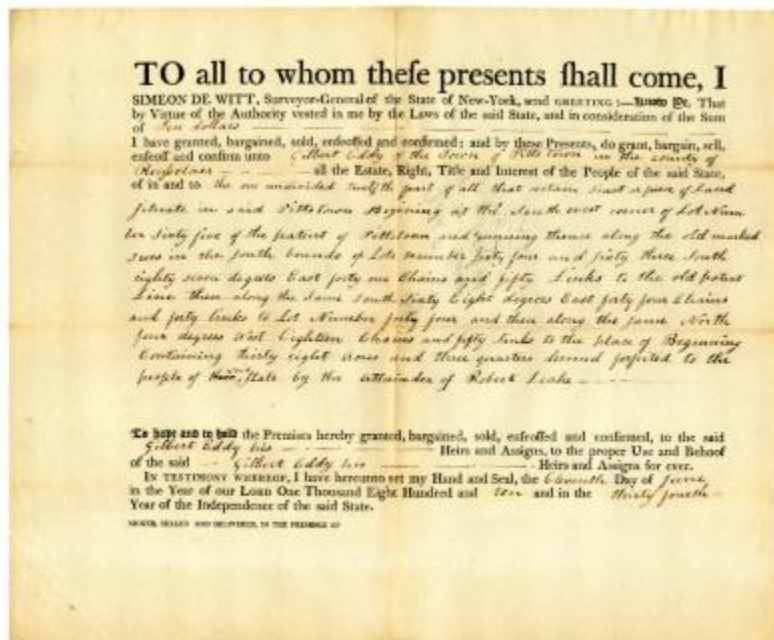 TO all to whom theſe presents ſhall come, I
SIMEON DE WITT, Surveyor-General of the State of New-York, send GREETING :—Know Ye, That
by Virtue of the Authority vested in me by the Laws of the said State, and in consideration of the Sum
of Ten dollars
I have granted, bargained, sold, enfeoffed and confirmed; and by these Presents, do grant, bargain, sell,
enfeoff and confirm unto Gilbert Eddy of the Town of Pittstown in the county of
Rensselaer all the Estate, Right, Title and Interest of the People of the said State,
of in and to the one undivided part of all that certain tract or piece of Land
situate in said Pittstown Beginning at the South west corner of Lot Num
ber Sixty five of the patent of Pittstown and running thence along the old marked
trees in the south bounds of Lots number sixty four and sixty three South
eighty seven degrees East forty one Chains and fifty Links to the old patent
Line then along the same South Sixty Eight degrees East forty four Chains
and forty links to Lot Number forty four and then along the same North
four degrees West Eighteen Chains and fifty links to the place of Beginning
Containing thirty eight acres and three quarters forfeited to the
people of State by the attainder of Robert Leake
To have and to hold the Premises hereby granted, bargained, sold, enfeoffed and confirmed, to the said
Gilbert Eddy his Heirs and Assigns, to the proper Use and Behoof
of the said Gilbert Eddy his Heirs and Assigns for ever.
IN TESTIMONY WHEREOF, I have hereunto set my Hand and Seal, the Eleventh Day of June
in the Year of our LORD One Thousand Eight Hundred and ten and in the thirty fourth
Year of the Independence of the said State.
SIGNED, SEALED AND DELIVERED, IN THE PRESENCE OF